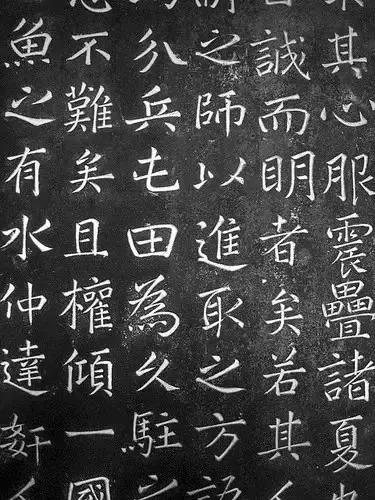 其心服震疊諸夏
誠而明者矣若其
之師以進取之方
分兵屯田為久駐之
不難矣且權傾一國
魚之有水仲達奸